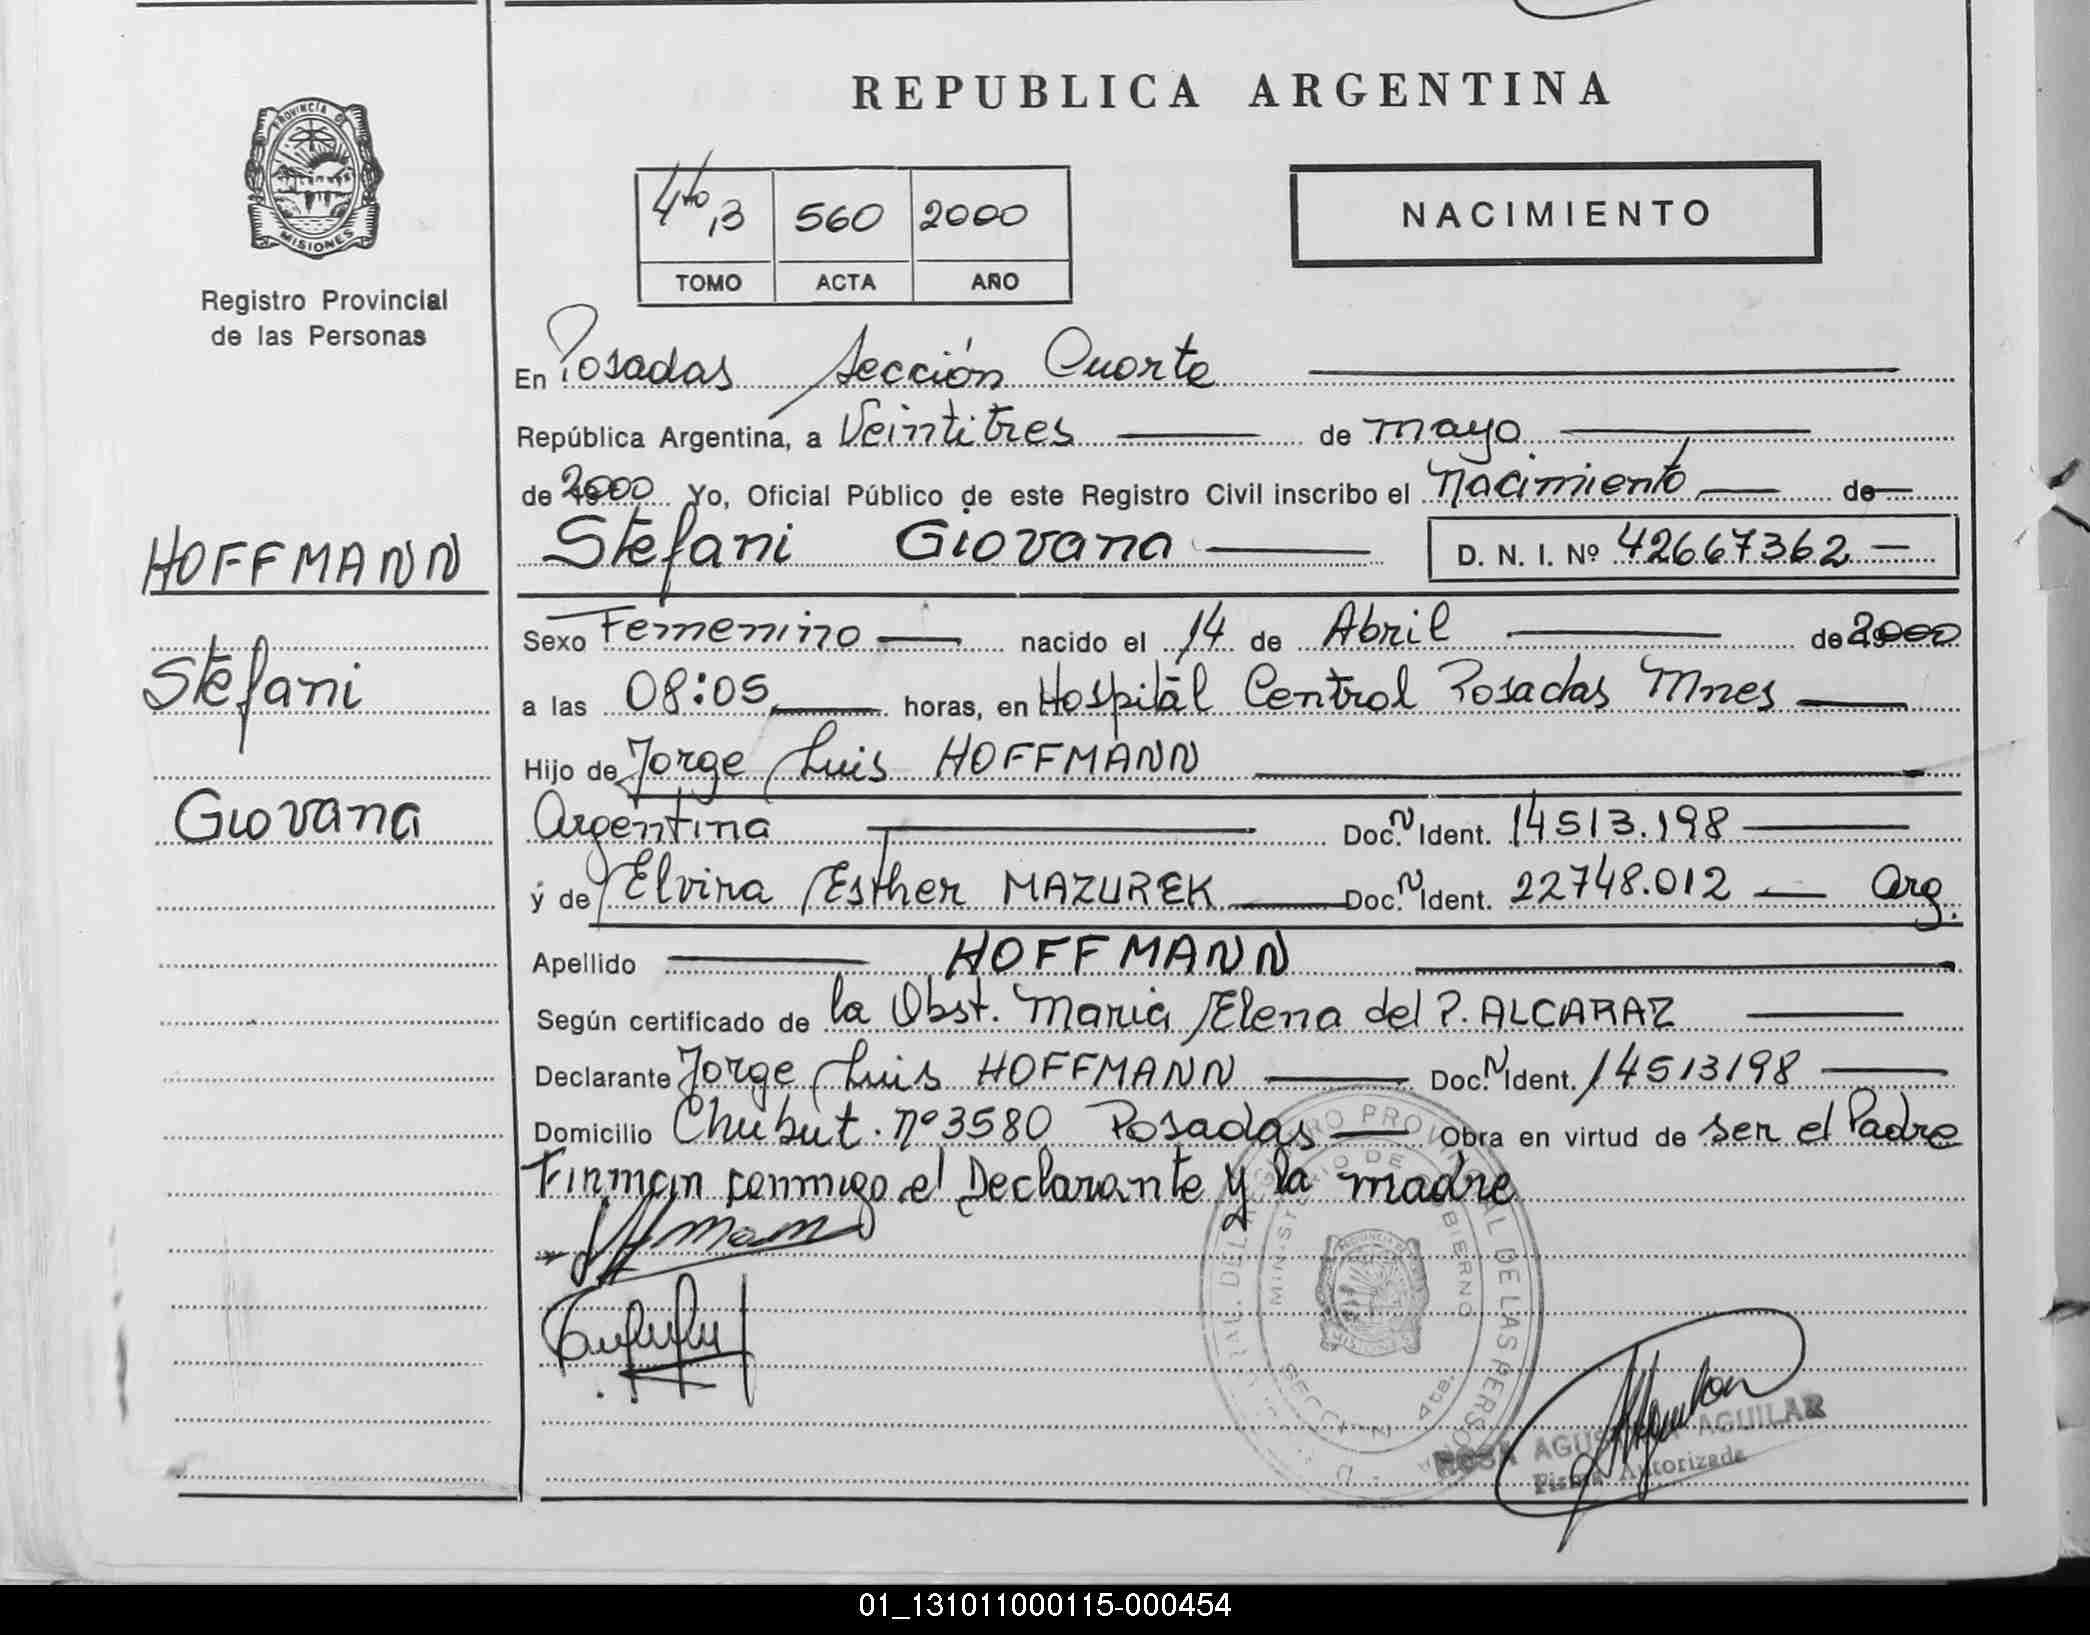 REPUBLICA ARGENTINA
PROVINCIA DE
MISIONES
Registro Provincial
de las Personas
4to, 3 560 2000
TOMO ACTA AÑO
NACIMIENTO
En Posadas Sección Cuarta
República Argentina, a Veintitres de mayo
de 2000 Yo, Oficial Público de este Registro Civil inscribo el Nacimiento de
Stefani Giovana D. N. I. Nº 42667362
HOFFMANN
Stefani
Giovana
Sexo Femenino nacido el 14 de Abril de 2000
a las 08:05 horas, en Hospital Central Posadas Mnes
Hijo de Jorge Luis HOFFMANN
Argentina Doc. N Ident. 14513.198
y de Elvira Esther MAZUREK Doc. N Ident. 22748.012 Arg.
Apellido HOFFMANN
Según certificado de la Obst. Maria Elena del P. ALCARAZ
Declarante Jorge Luis HOFFMANN Doc. N Ident. 14513198
Domicilio Chubut. nº 3580 Posadas Obra en virtud de ser el Padre
Firman conmigo el Declarante y la madre
MINISTERIO DE GOBIERNO
SECCION 4ta.
AGUILAR
Firma Autorizada
01_131011000115-000454